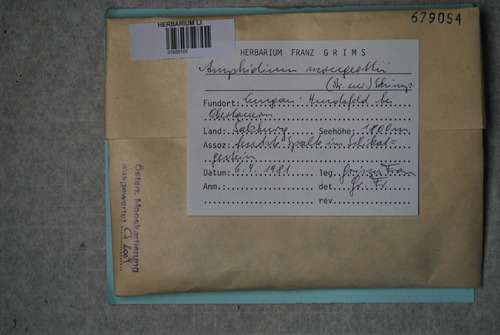 679054
HERBARIUM LI
HERBARIUM FRANZ GRIMS
Amphidium mougeotii
(Br. eur.) Schimp.
Fundort: Lungau: Hundsfeld bei
Obertauern
Land: Salzburg Seehöhe: 1800m
Assoz: feuchte Spalte in Silikat-
gestein
Datum: 6.9.1981 leg. Grims Franz
Anm.: det. Gr. Fr.
rev.
Österr. Mooskartierung
ausgewertet